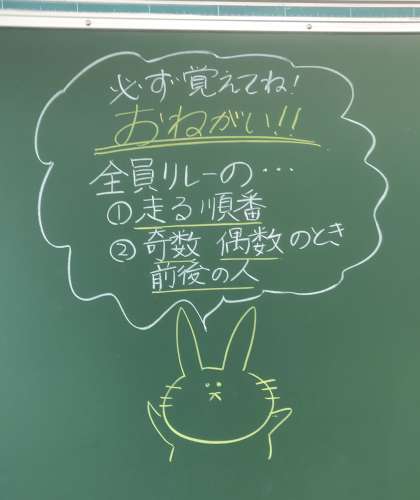 必ず覚えてね!
おねがい!!
全員リレーの…
①走る順番
②奇数 偶数のとき
前後の人